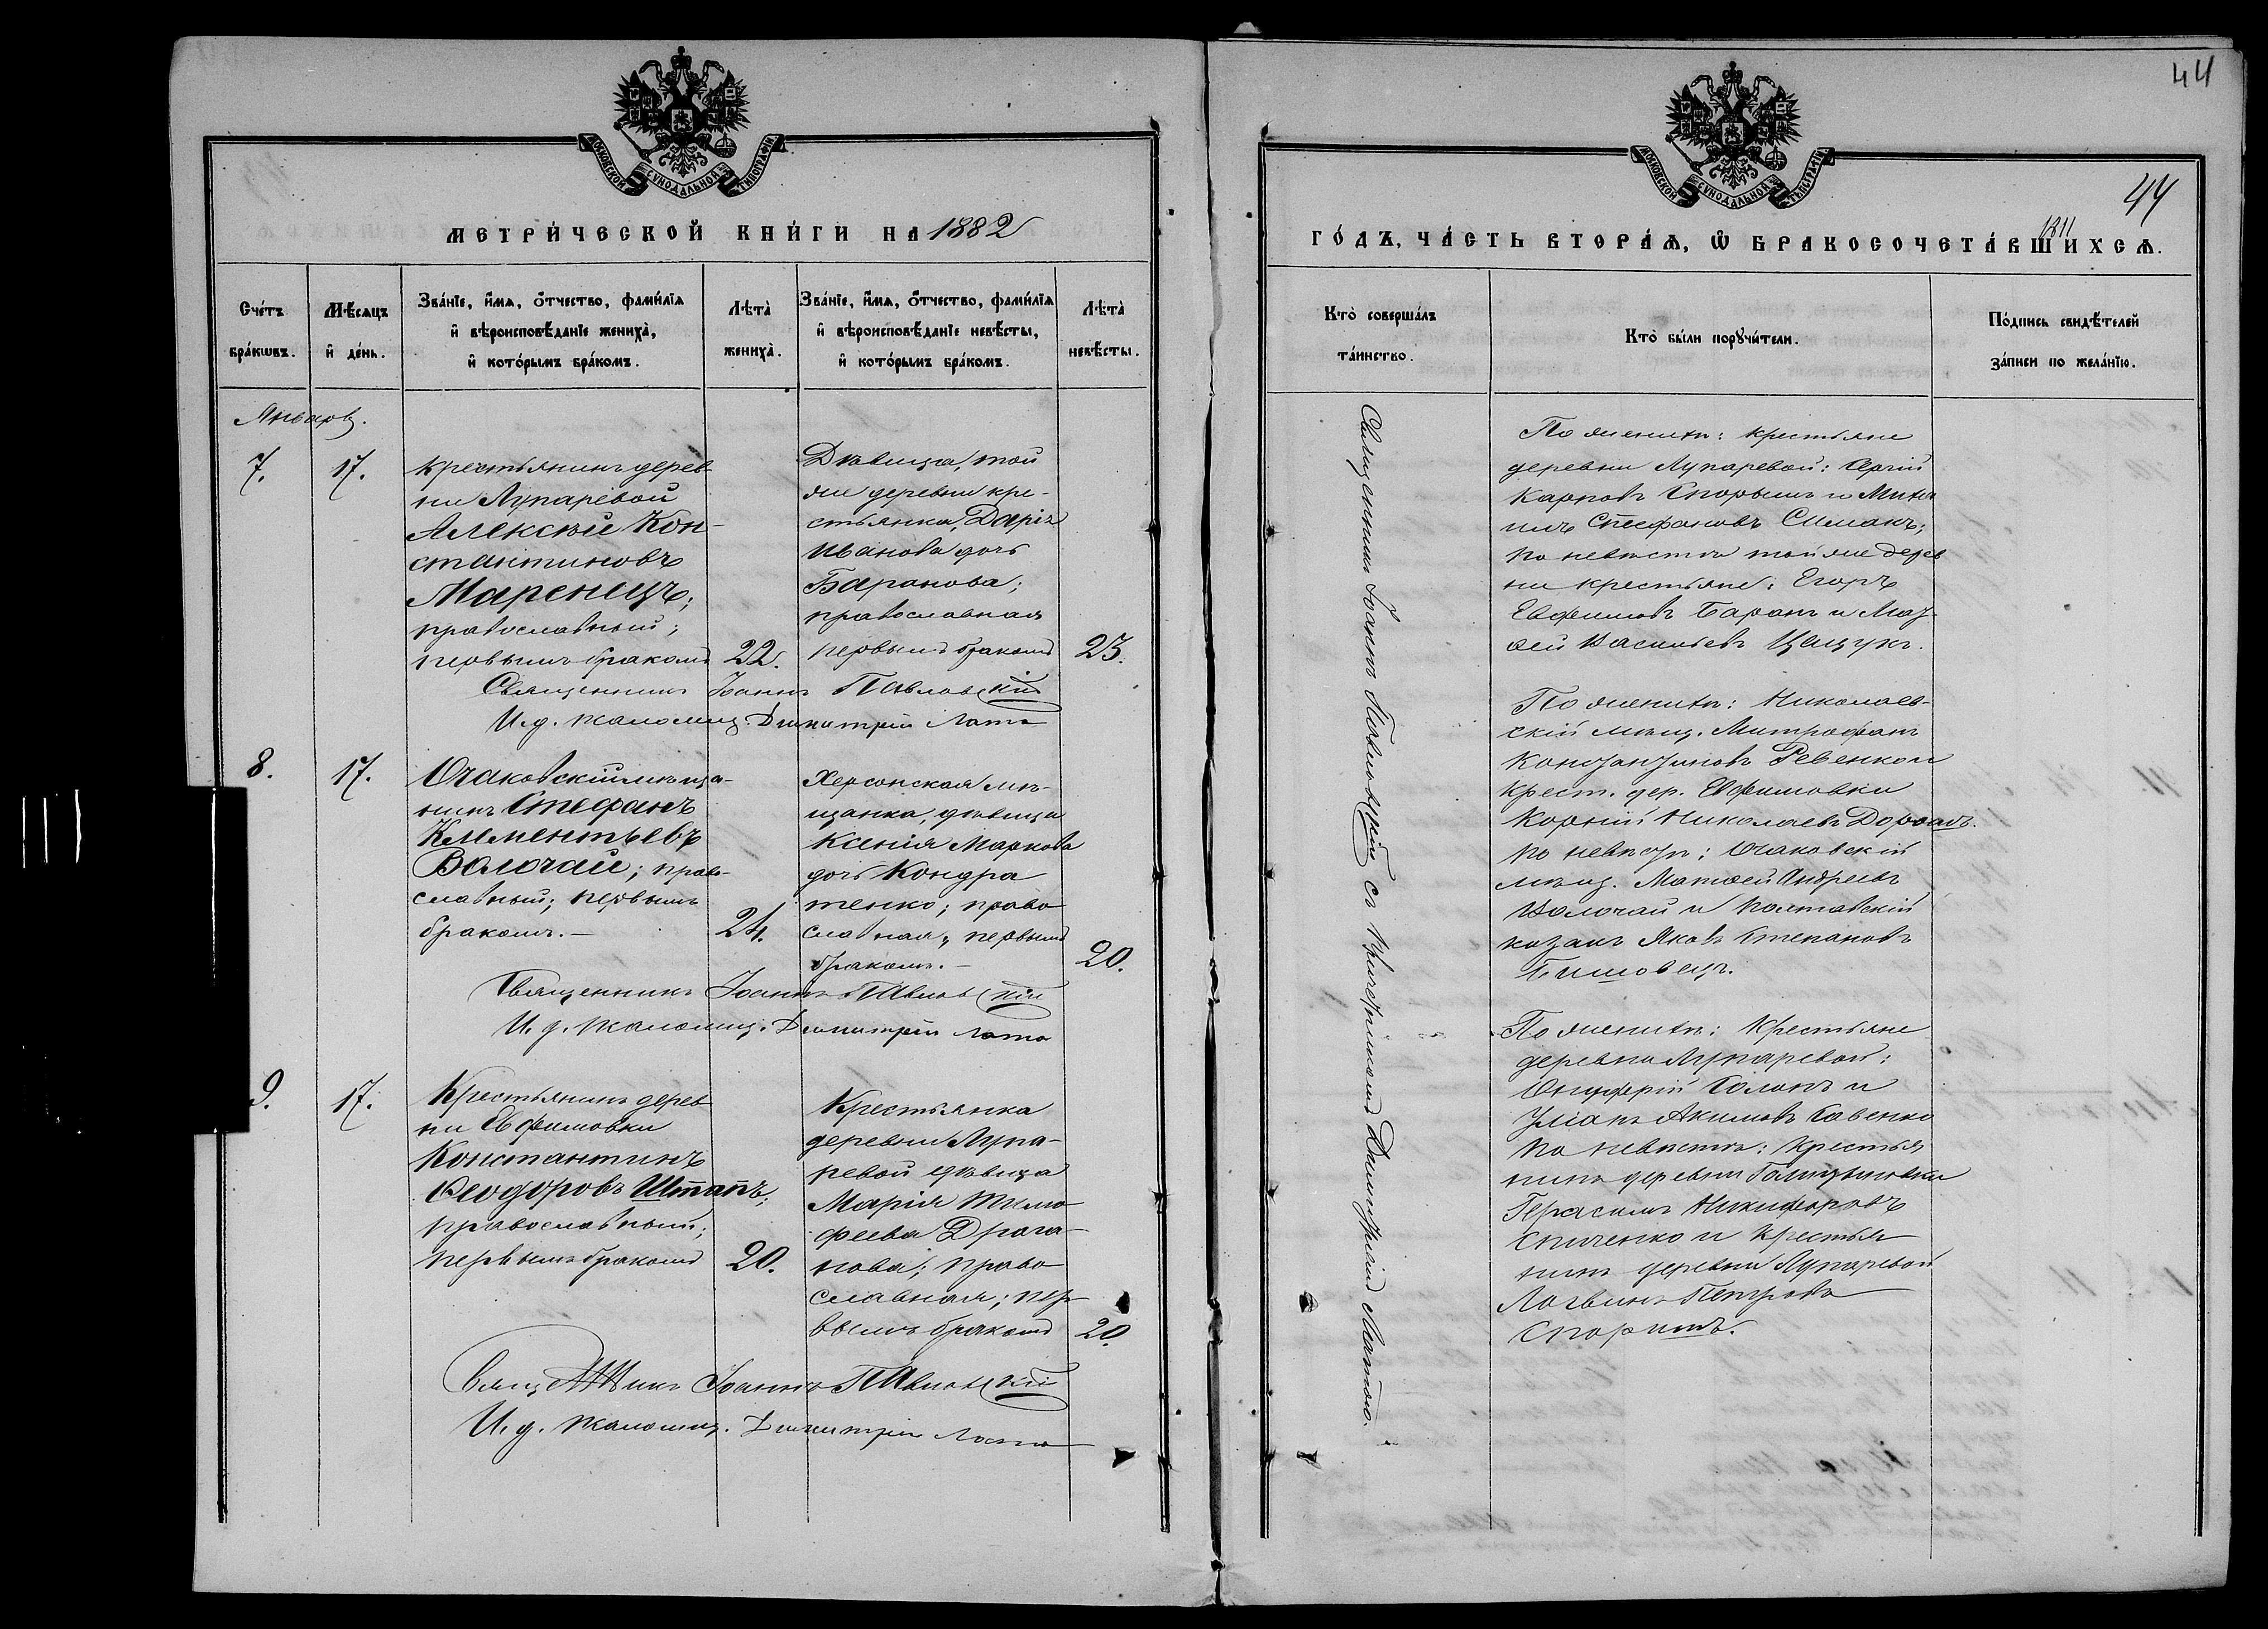 МОСКОВСКОЙ СѴНОДАЛЬНОЙ ТИПОГРАФІИ.
МЕТРИ́ЧЕСКОЙ КНИ́ГИ НА 1882
Сче́тъ бра́кѡвъ.
Мѣ́сяцъ и҆ де́нь.
Зва́нїе, и҆́мя, ѻ҆́тчество, фами́лїя
и҆ вѣроисповѣ́данїе жениха̀,
и҆ кото́рымъ бра́комъ.
Лѣ́та̀ жениха̀.
Зва́нїе, и҆́мя, ѻ҆́тчество, фами́лїя
и҆ вѣроисповѣ́данїе невѣ́сты,
и҆ кото́рымъ бра́комъ.
Лѣ́та̀ невѣ́сты.
Январь.
7.
17.
Крестьянинъ дерев
ни Лупаревой
Алексѣй Кон-
стантиновъ
Маренецъ;
православный;
первымъ бракомъ
22.
Дѣвица, той
же деревни кре-
стьянка, Дарія
Иванова дочь
Баранова;
православная
первымъ бракомъ
23.
Священникъ Іоаннъ Павловскій
И. д. псаломщ. Димитрій Лата
8.
17.
Очаковскій мѣща-
нинъ Стефанъ
Климентьевъ
Волочай; право-
славный; первымъ
бракомъ.
24.
Херсонская мѣ-
щанка, дѣвица
Ксенія Маркова
дочь Кондра
тенко; право
славная, первымъ
бракомъ.
20.
Священникъ Іоаннъ Павловскій
И. д. псаломщ. Димитрій Лата
9.
17.
Крестьянинъ дерев
ни Евфимовки
Константинъ
Ѳеодоровъ Штапъ;
православный;
первымъ бракомъ
20.
Крестьянка
деревни Лупа-
ревой дѣвица
Марія Тимо
феева Драга-
нова; право
славная; пер-
вымъ бракомъ
20.
Священникъ Іоаннъ Павловскій
И. д. псаломщ. Димитрій Лата
44
МОСКОВСКОЙ СѴНОДАЛЬНОЙ ТИПОГРАФІИ.
44
1811
ГО́ДЪ, ЧА́СТЬ ВТОРА́Я, Ѡ҆ БРАКОСОЧЕТА́ВШИХСЯ.
Кто̀ соверша́лъ та́инство.
Кто̀ бы́ли порꙋчи́тели.
По́дпись свидѣ́телей за́писи по жела́нїю.
Священникъ Іоаннъ Павловскій съ причетникомъ Димитріемъ Латою.
По женихѣ: крестьяне
деревни Лупаревой: Сергій
Карповъ Спорышъ и Миха
илъ Стефановъ Симакъ;
по невѣстѣ той же дерев
ни крестьяне: Егоръ
Евфимовъ Баранъ и Моѵ-
сей Васильевъ Цащукъ.
По женихѣ: Николаев-
скій мѣщ. Митрофанъ
Константиновъ Ревенко и
крест. дер. Евфимовки
Корній Николаевъ
по невѣстѣ: Очаковскій
мѣщ. Матѳей Андреевъ
Волочай и Полтавскій
козакъ Яковъ Степановъ
По женихѣ: Крестьяне
деревни Лупаревой:
Онуфрій Голакъ и
Уліанъ Акимовъ Савенко
по невѣстѣ: Крестья
нинъ деревни Галицыновки
Герасимъ Никифоровъ
Спиченко и крестья
нинъ деревни Лупаревой
Логвинъ Петровъ
Споришъ.